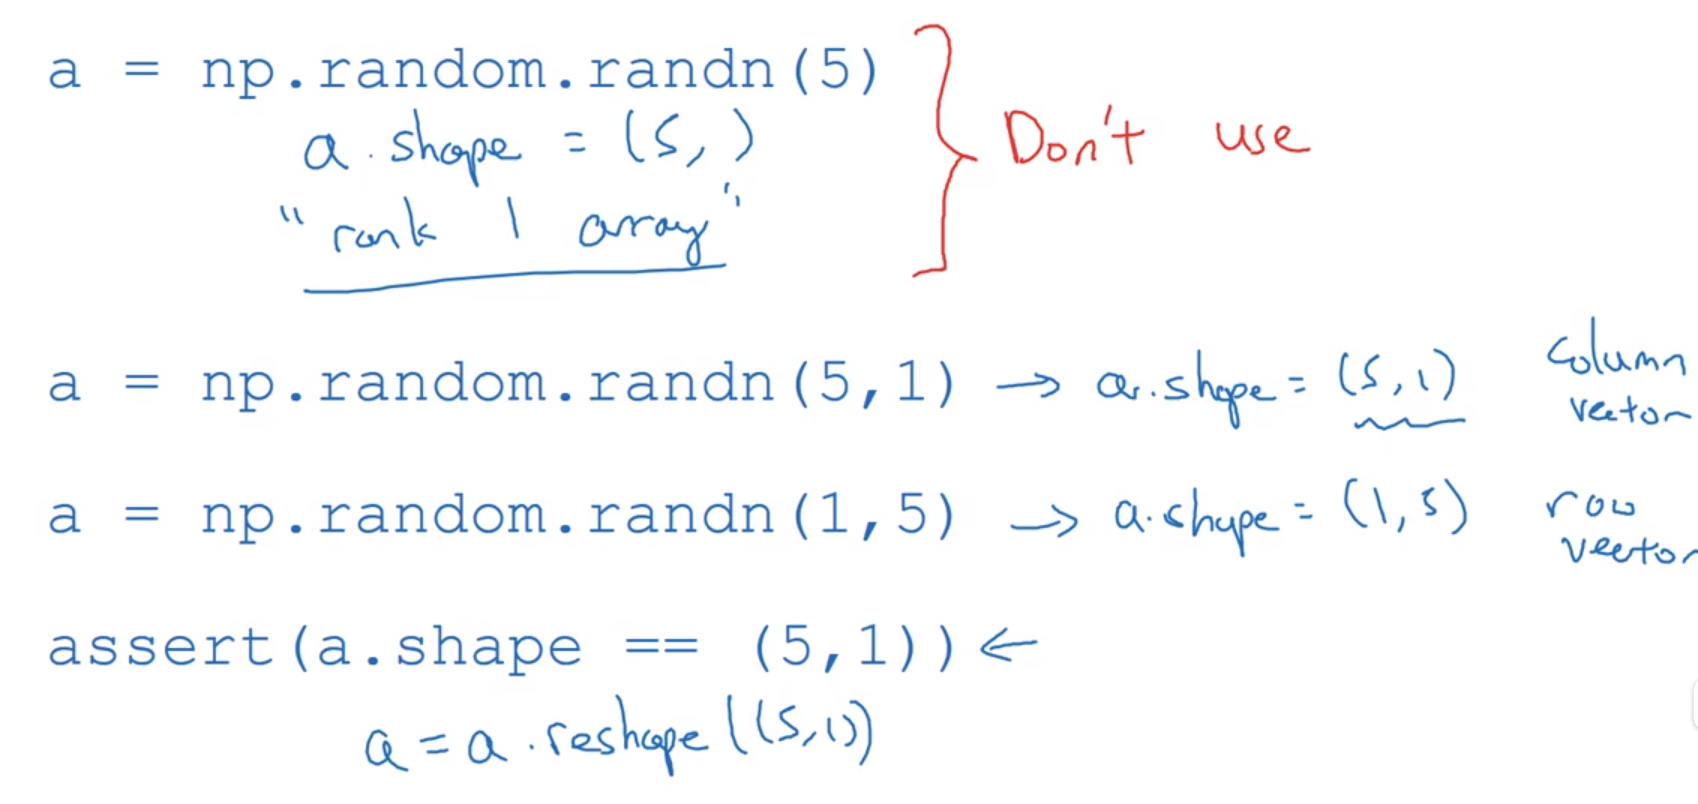 a = np.random.randn(5)
a.shape = (5,)
"rank 1 array"
Don't use
a = np.random.randn(5,1) → a.shape = (5,1) column vector
a = np.random.randn(1,5) → a.shape = (1,5) row vector
assert(a.shape == (5,1)) ←
a = a.reshape((5,1))